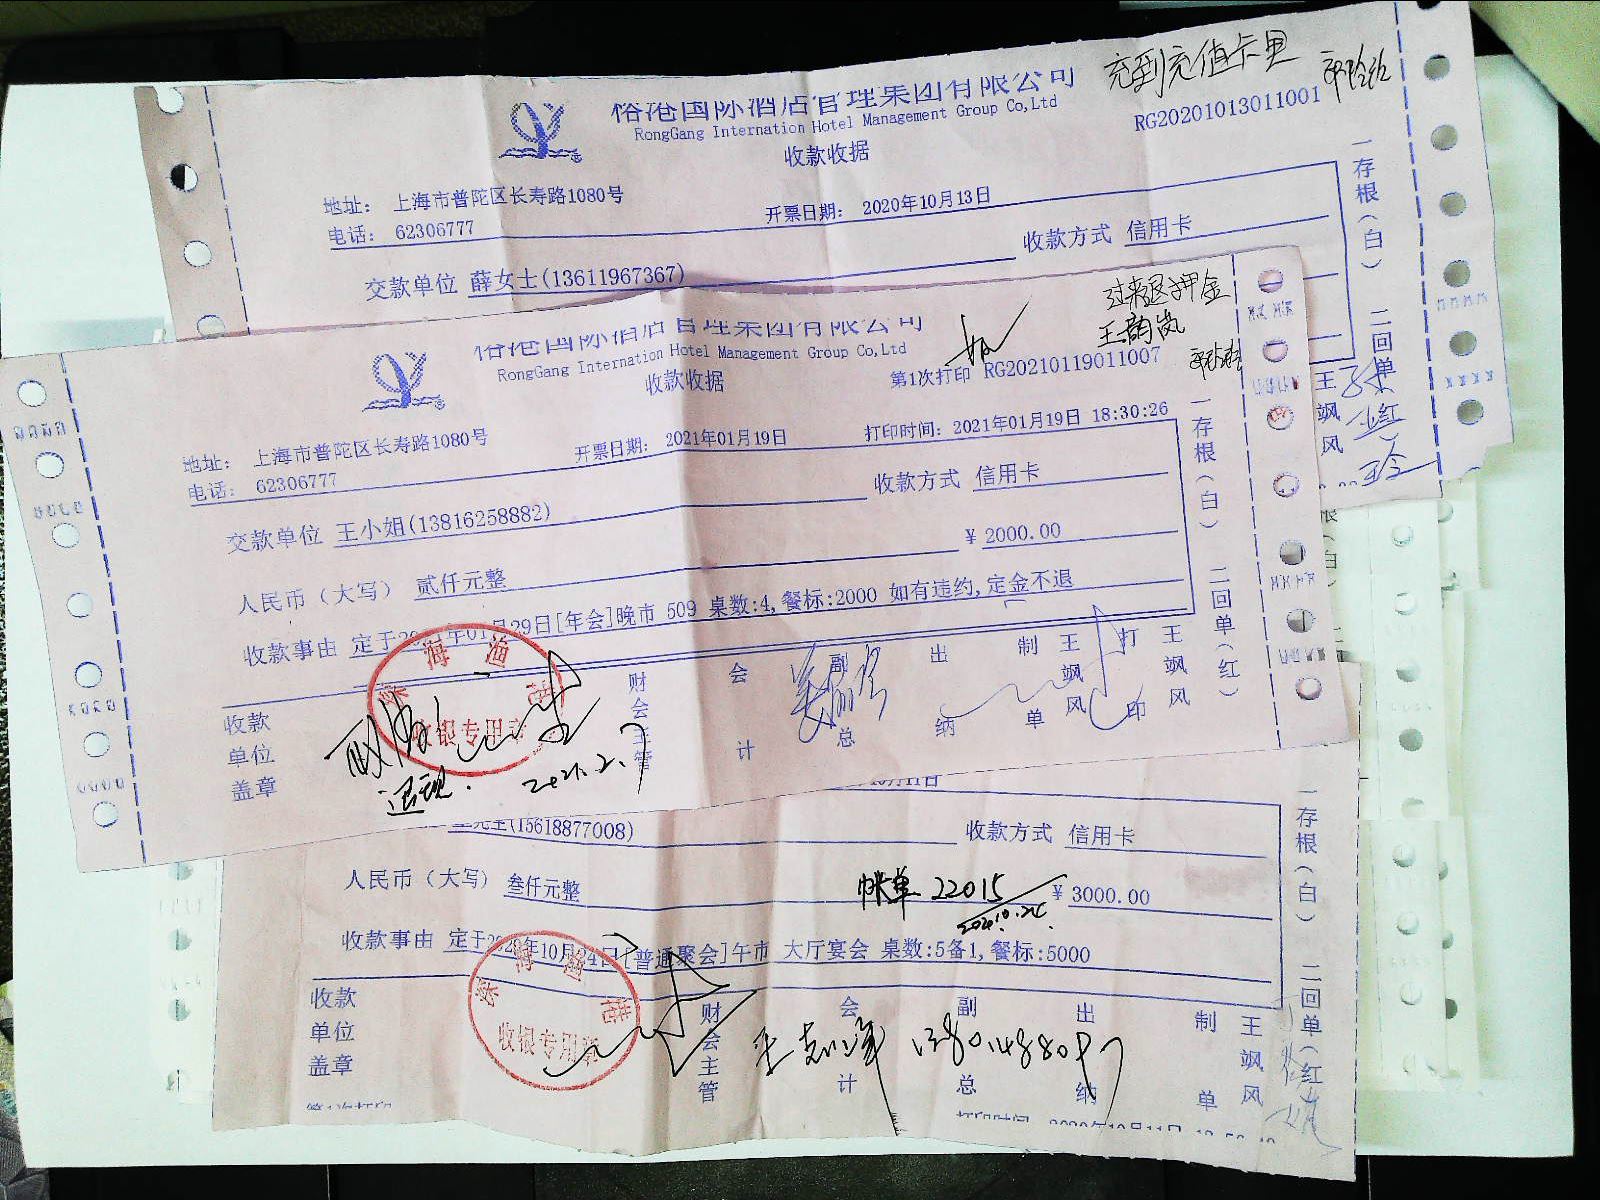 充到充值卡里
国际酒店管理集团有限公司
RongGang Internation Hotel Management Group Co,Ltd
RG20201013011001
收款收据
地址: 上海市普陀区长寿路1080号
电话: 62306777
开票日期: 2020年10月13日
收款方式 信用卡
交款单位 薛女士(13611967367)
一存根(白) 二回单(红)
王飒风
过来退押金
王韵岚
国际酒店管理集团有限公司
RongGang Internation Hotel Management Group Co,Ltd
收款收据
第1次打印 RG20210119011007
地址: 上海市普陀区长寿路1080号
电话: 62306777
开票日期: 2021年01月19日
打印时间: 2021年01月19日 18:30:26
收款方式 信用卡
交款单位 王小姐(13816258882)
¥ 2000.00
人民币(大写) 贰仟元整
收款事由 定于2021年01月29日[年会]晚市 509 桌数:4,餐标:2000 如有违约,定金不退
一存根(白) 二回单(红)
收款单位盖章
收银专用章
财会主管
会计
副总
出纳
制单 王飒风
打印 王飒风
退现. 2021.2.7
(15618877008)
收款方式 信用卡
人民币(大写) 叁仟元整
帐单 22015
¥ 3000.00
2020.10.24.
收款事由 定于2020年10月24日[普通聚会]午市 大厅宴会 桌数:5备1,餐标:5000
一存根(白) 二回单(红)
收款单位盖章
收银专用章
财会主管
会计
副总
出纳
制单 王飒风